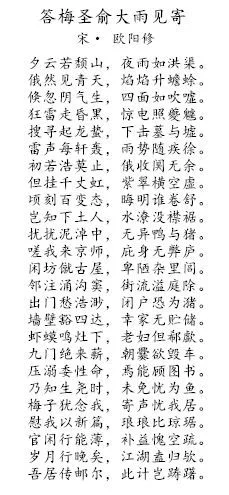 答梅圣俞大雨见寄
宋·欧阳修
夕云若颓山，夜雨如洪渠。
俄然见青天，焰焰升蟾蜍。
倏忽阴气生，四面如吹嘘。
狂雷走昏黑，惊电照夔魖。
搜寻起龙蛰，下击墓与墟。
雷声每轩轰，雨势随疾徐。
初若浩莫止，俄收阒无余。
但挂千丈虹，紫翠横空虚。
顷刻百变态，晦明谁卷舒。
岂知下土人，水潦没襟裾。
扰扰泥淖中，无异鸭与猪。
嗟我来京师，庇身无弊庐。
闲坊僦古屋，卑陋杂里闾。
邻注涌沟窦，街流溢庭除。
出门愁浩渺，闭户恐为潴。
墙壁豁四达，幸家无贮储。
虾蟆鸣灶下，老妇但欷歔。
九门绝来薪，朝爨欲毁车。
压溺委性命，焉能顾图书。
乃知生尧时，未免忧为鱼。
梅子犹念我，寄声忧我居。
慰我以新篇，琅琅比琼琚。
官闲行能薄，补益愧空疏。
岁月行晚矣，江湖盍归欤。
吾居传邮尔，此计岂踌躇。